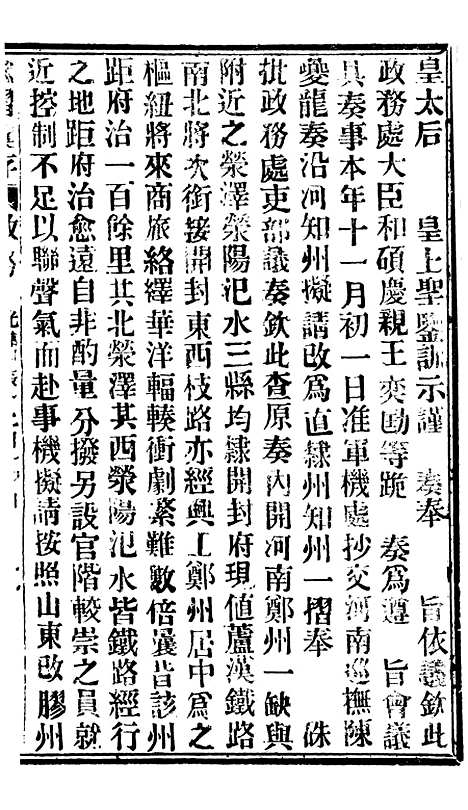 皇太后　皇上聖鑒訓示謹　奏奉　旨依議欽此
政務處大臣和碩慶親王奕劻等跪　奏爲遵　旨會議
具奏事本年十一月初一日准軍機處抄交河南巡撫陳
夔龍奏沿河知州擬請改爲直隸州知州一摺奉　硃
批政務處吏部議奏欽此查原奏內開河南鄭州一缺與
附近之滎澤滎陽汜水三縣均隸開封府現値蘆漢鐵路
南北將次銜接開封東西枝路亦經興工鄭州居中爲之
樞紐將來商旅絡繹華洋輻輳衝劇繁難數倍曩昔該州
距府治一百餘里其北滎澤其西滎陽汜水皆鐵路經行
之地距府治愈遠自非酌量分撥另設官階較崇之員就
近控制不足以聯聲氣而赴事機擬請按照山東改膠州
政務